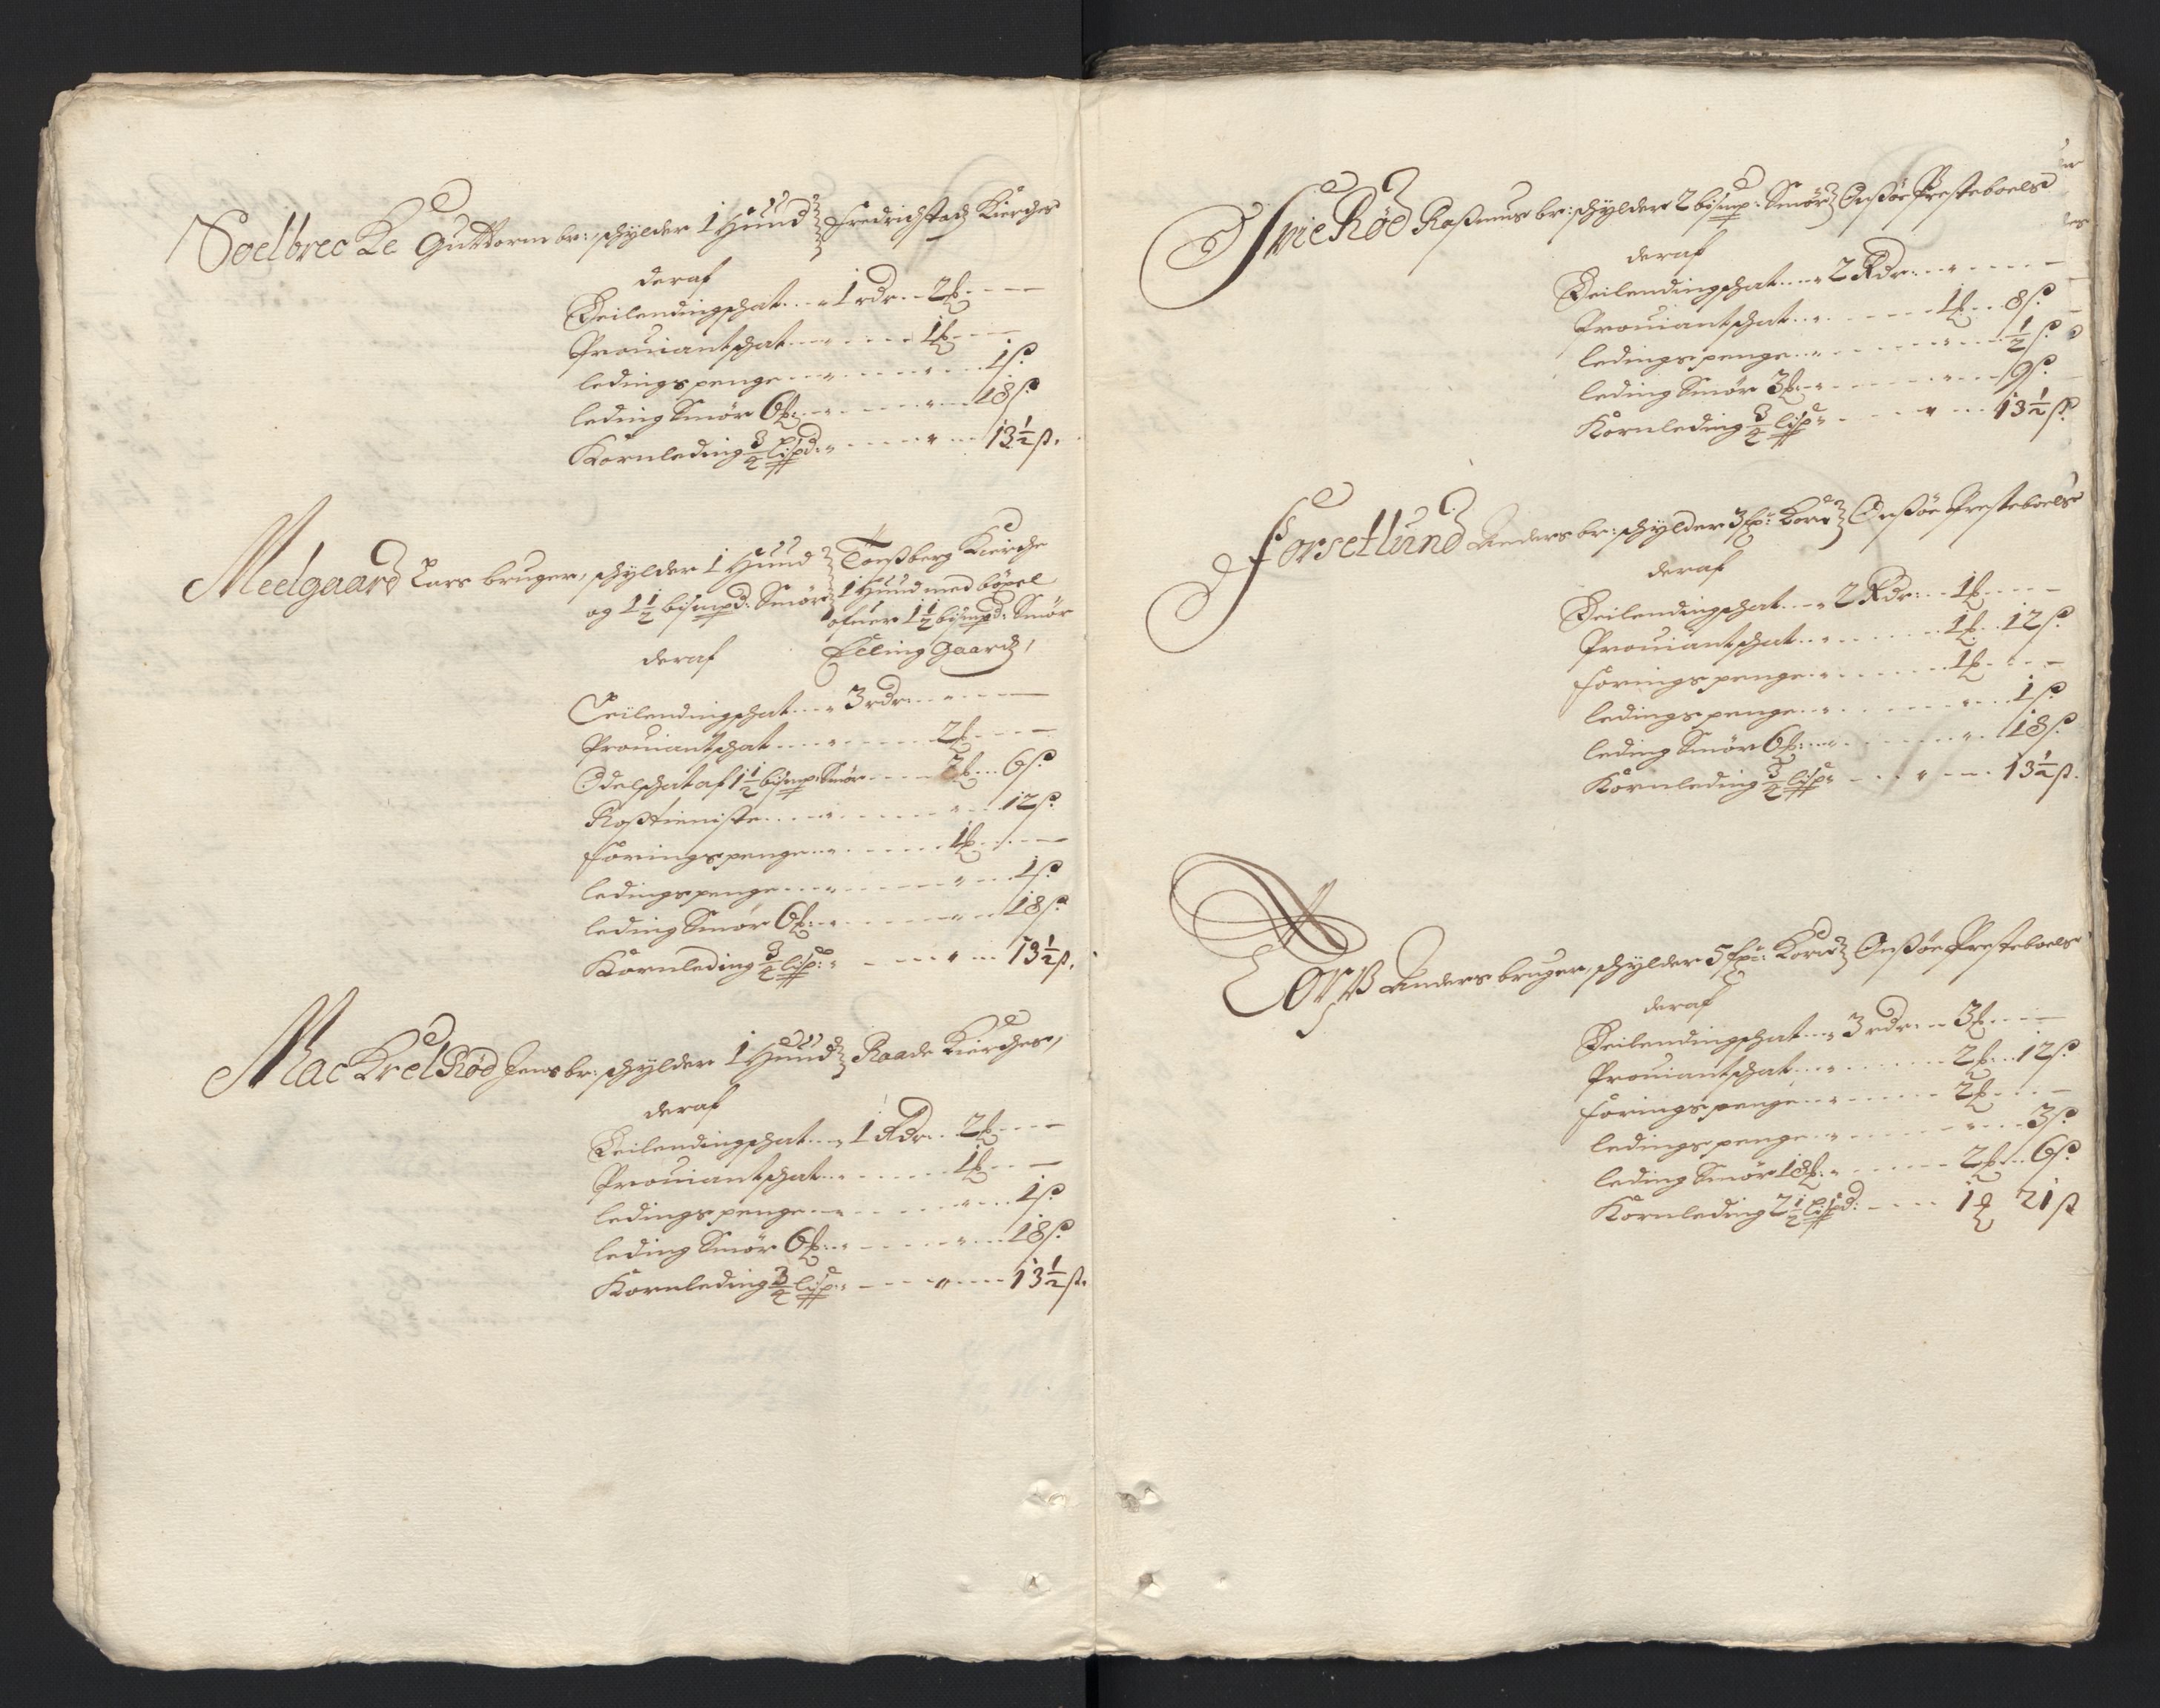 Soelbrecke Guttorm br: schylder 1 Hund Fredrichstad Kierches
deraf
Leilendingschat 1 rdr 2 ƶ
Prouiantschat 1 ƶ
ledingspenge 1 ß
leding Smør 6 ƶ: 18 ß
Kornleding 3/4 lispd: 13 1/2 ß.
Meelgaard Lars bruger, schylder 1 Hund Tonßberg Kierche
og 1 1/2 bismpd: Smør 1 Hund med böxel
ofuer 1 1/2 bismpd: Smör
deraf Elling Gaard,
Leilendingschat 3 rdr
Prouiantschat 2 ƶ
Odelschat af 1 1/2 bismp: Smør 6 ß
Roßtieniste 12 ß
foringspenge 1 ƶ
ledingspenge 1 ß
leding Smør 6 ƶ: 18 ß
Kornleding 3/4 lisp: 13 1/2 ß.
MacKrelRød Jens br: schylder 1 Hund Raade Kierches,
deraf
Leilendingschat 1 Rdr 2 ƶ
Prouiantschat 1 ƶ
ledingspenge 1 ß
leding Smør 6 ƶ: 18 ß
Kornleding 3/4 lisp: 13 1/2 ß.
Rød Raßmus br: schylder 2 bismp: Smør Onßøe Presteboels
deraf
Leilendingschat 2 Rdr:
Prouiantschat 1 ƶ 8 ß
ledingspenge 1/2 ß
leding Smør 3 ƶ: 9 ß
Kornleding 3/4 lisp: 13 1/2 ß
Forsetlund Anders br: schylder 3 Korn Onßøe Presteboels
deraf
Leilendingschat 2 Rdr: 1 ƶ
Prouiantschat 1 ƶ 12 ß
foringspenge 1 ƶ
ledingspenge 1 ß
leding Smør 6 ƶ: 18 ß
Kornleding 3/4 lisp: 13 1/2 ß.
Torp Anders bruger, schylder 5 Korn Onßøe Presteboels
deraf
Leilendingschat 3 rdr 3 ƶ
Prouiantschat 2 ƶ 12 ß
foringspenge 2 ƶ
ledingspenge 3 ß
leding Smør 18 ƶ: 2 ƶ 6 ß
Kornleding 2 1/2 lispd: 1 ƶ 21 ß